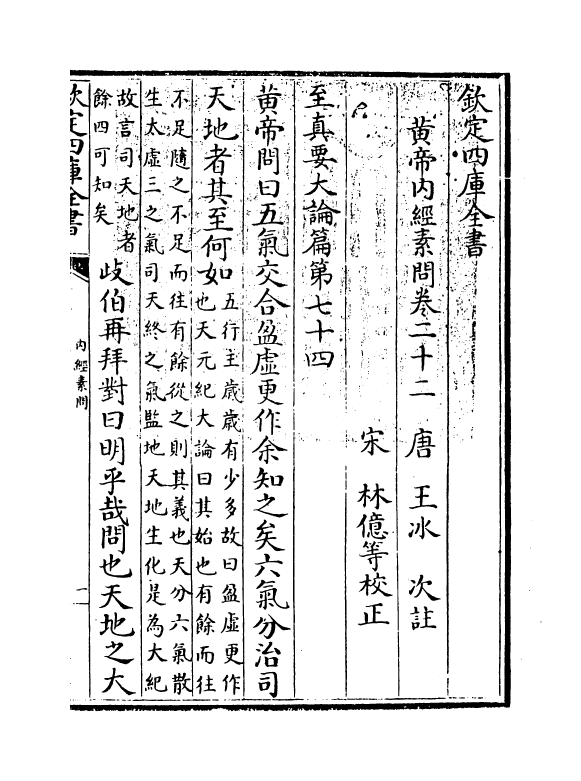 欽定四庫全書
黄帝内經素問卷二十二 唐 王冰 次註
宋 林億等校正
至真要大論篇第七十四
黄帝問曰五氣交合盈虚更作余知之矣六氣分治司
天地者其至何如
五行主歳歳有少多故曰盈虚更作
也天元紀大論曰其始也有餘而往
不足隨之不足而往有餘從之則其義也天分六氣散
生太虚三之氣司天終之氣監地天地生化是為大紀
故言司天地者
餘四可知矣
岐伯再拜對曰明乎哉問也天地之大
欽定四庫全書
内經素問
一